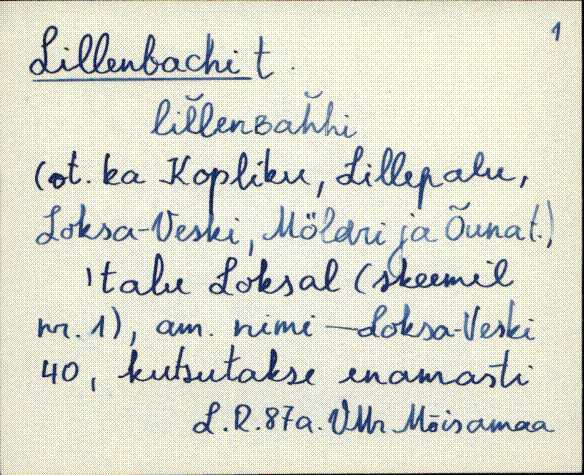 1
Lillenbachi t.
lĭllenʙah̆hi
(vt. ka Kopliku, Lillepalu,
Loksa-Veski, Möldri ja Õuna t.)
'talu Loksal (skeemil
nr. 1), am. nimi — Loksa-Veski
40, kutsutakse enamasti
L.R. 87a. VMr Mõisamaa